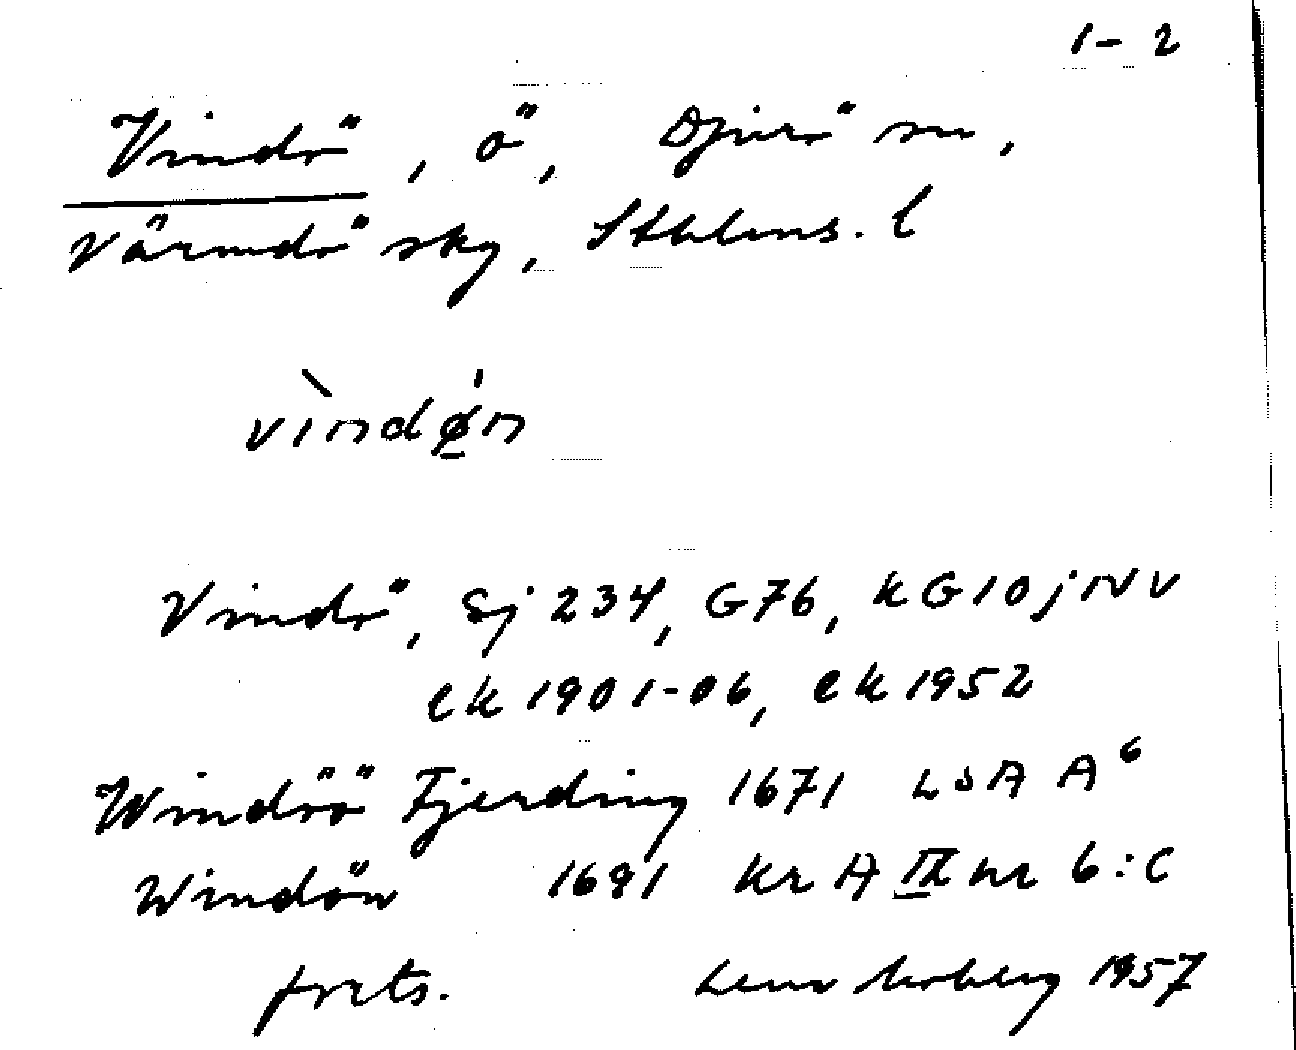 1-2
Vindö, ö, Djurö sn,
Värmdö sky, Sthlms. l
vìndø̱´n
Vindö, Sj 234, G76, KG10jNV
ek 1901-06, ek 1952
Windöö Fjerding 1671 LSA A6
Windön 1691 KrA IX nr 6:C
forts. Lena Moberg 1957